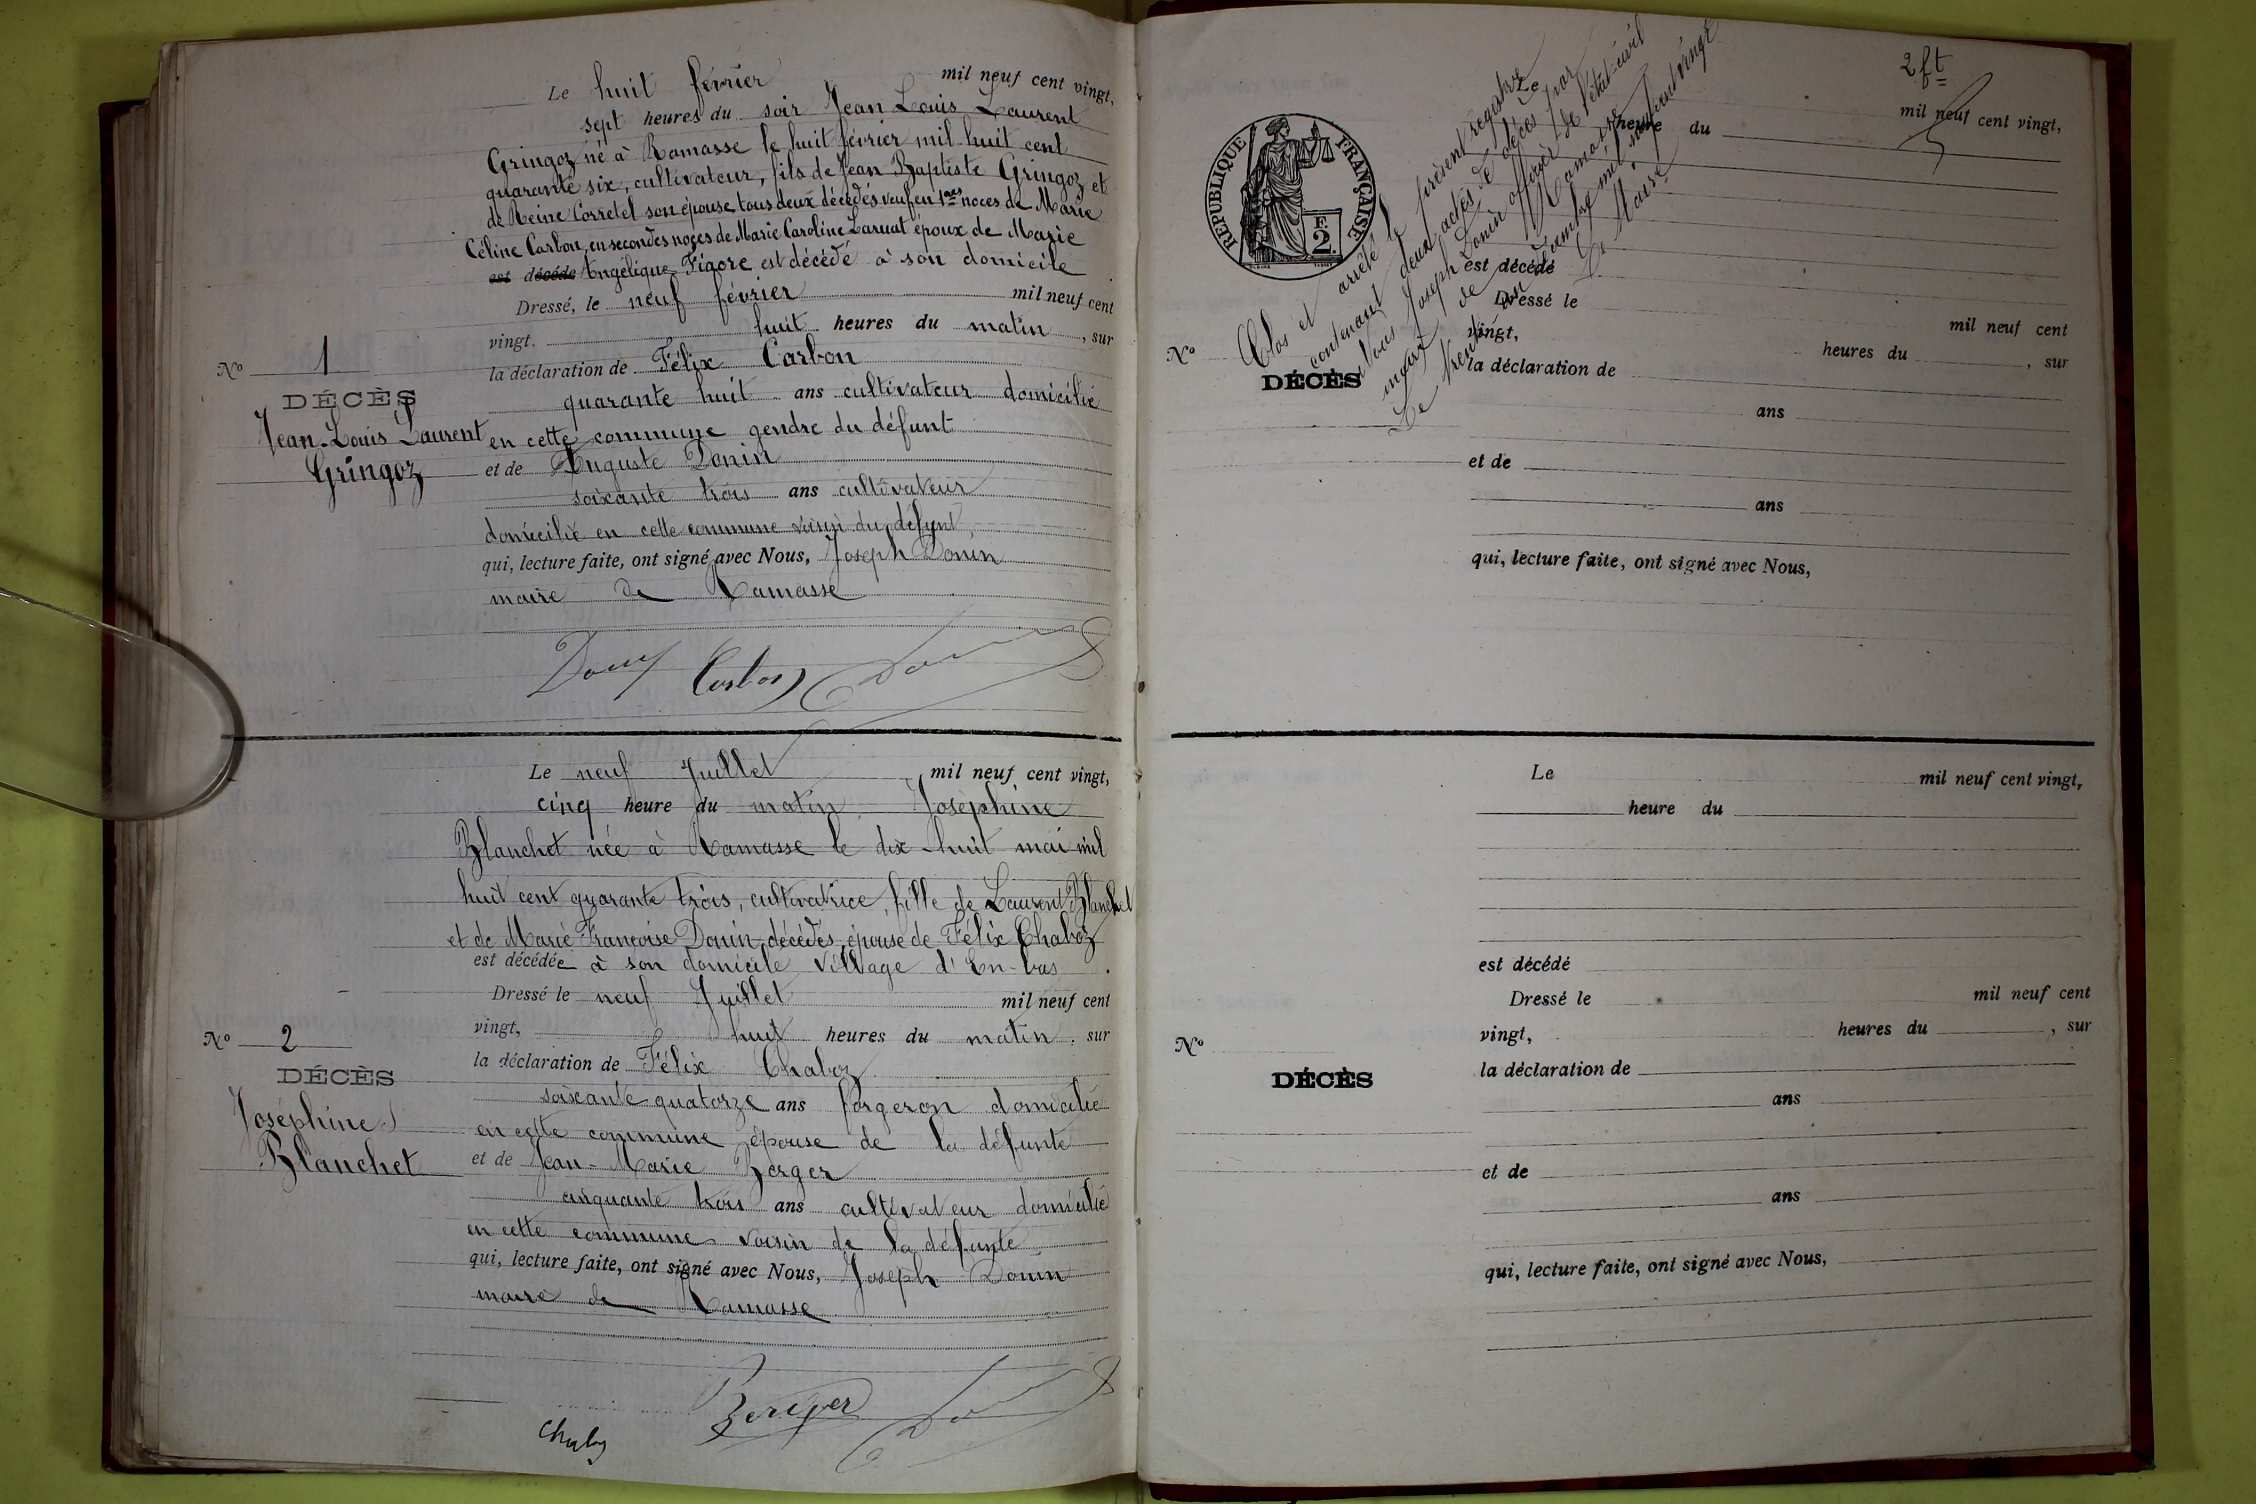 Le huit février mil neuf cent vingt,
sept heures du soir Jean Louis Laurent
Gringoz né à Ramasse le huit février mil huit cent
quarante six, cultivateur, fils de Jean Baptiste Gringoz et
de Reine Corretel son épouse tous deux décédés veuf en 1res noces de Marie
Céline Carbon, en secondes noces de Marie Caroline Laruat époux de Marie
est décédé Angélique Figore est décédé à son domicile
Dressé, le neuf février mil neuf cent
vingt. huit heures du matin, sur
la déclaration de Félix Carbon
quarante huit ans cultivateur domicilié
en cette commune gendre du défunt
et de Auguste Donin
soixante trois ans cultivateur
domicilié en cette commune voisin du défunt
qui, lecture faite, ont signé avec Nous, Joseph Donin
maire de Ramasse
Carbon
No 1
DÉCÈS
Jean-Louis Laurent
Gringoz
Le neuf Juillet mil neuf cent vingt,
cinq heure du matin Joséphine
Blanchet née à Ramasse le dix-huit mai mil
huit cent quarante trois, cultivatrice, fille de Laurent Blanchet
et de Marie Françoise Donin, décédés, épouse de Félix Chaboz
est décédée à son domicile village d'En-bas.
Dressé le neuf Juillet mil neuf cent
vingt, huit heures du matin, sur
la déclaration de Félix Chaboz
soixante-quatorze ans forgeron domicilié
en cette commune épouse de la défunte
et de Jean-Marie Berger
cinquante trois ans cultivateur domicilié
en cette commune voisin de la défunte
qui, lecture faite, ont signé avec Nous, Joseph Donin
maire de Ramasse
Berger
No 2
DÉCÈS
Joséphine
Blanchet
2 ft
RÉPUBLIQUE FRANÇAISE
F.
2.
Clos et arrêté le présent registre
contenant deux actes de décès par
Nous Joseph Donin officier de l'état-civil
maire de Ramasse
Le trente un décembre mil neuf cent vingt
Le Maire
Le mil neuf cent vingt,
heure du
est décédé
Dressé le mil neuf cent
vingt, heures du , sur
la déclaration de
ans
et de
ans
qui, lecture faite, ont signé avec Nous,
No
DÉCÈS
Le mil neuf cent vingt,
heure du
est décédé
Dressé le mil neuf cent
vingt, heures du , sur
la déclaration de
ans
et de
ans
qui, lecture faite, ont signé avec Nous,
No
DÉCÈS